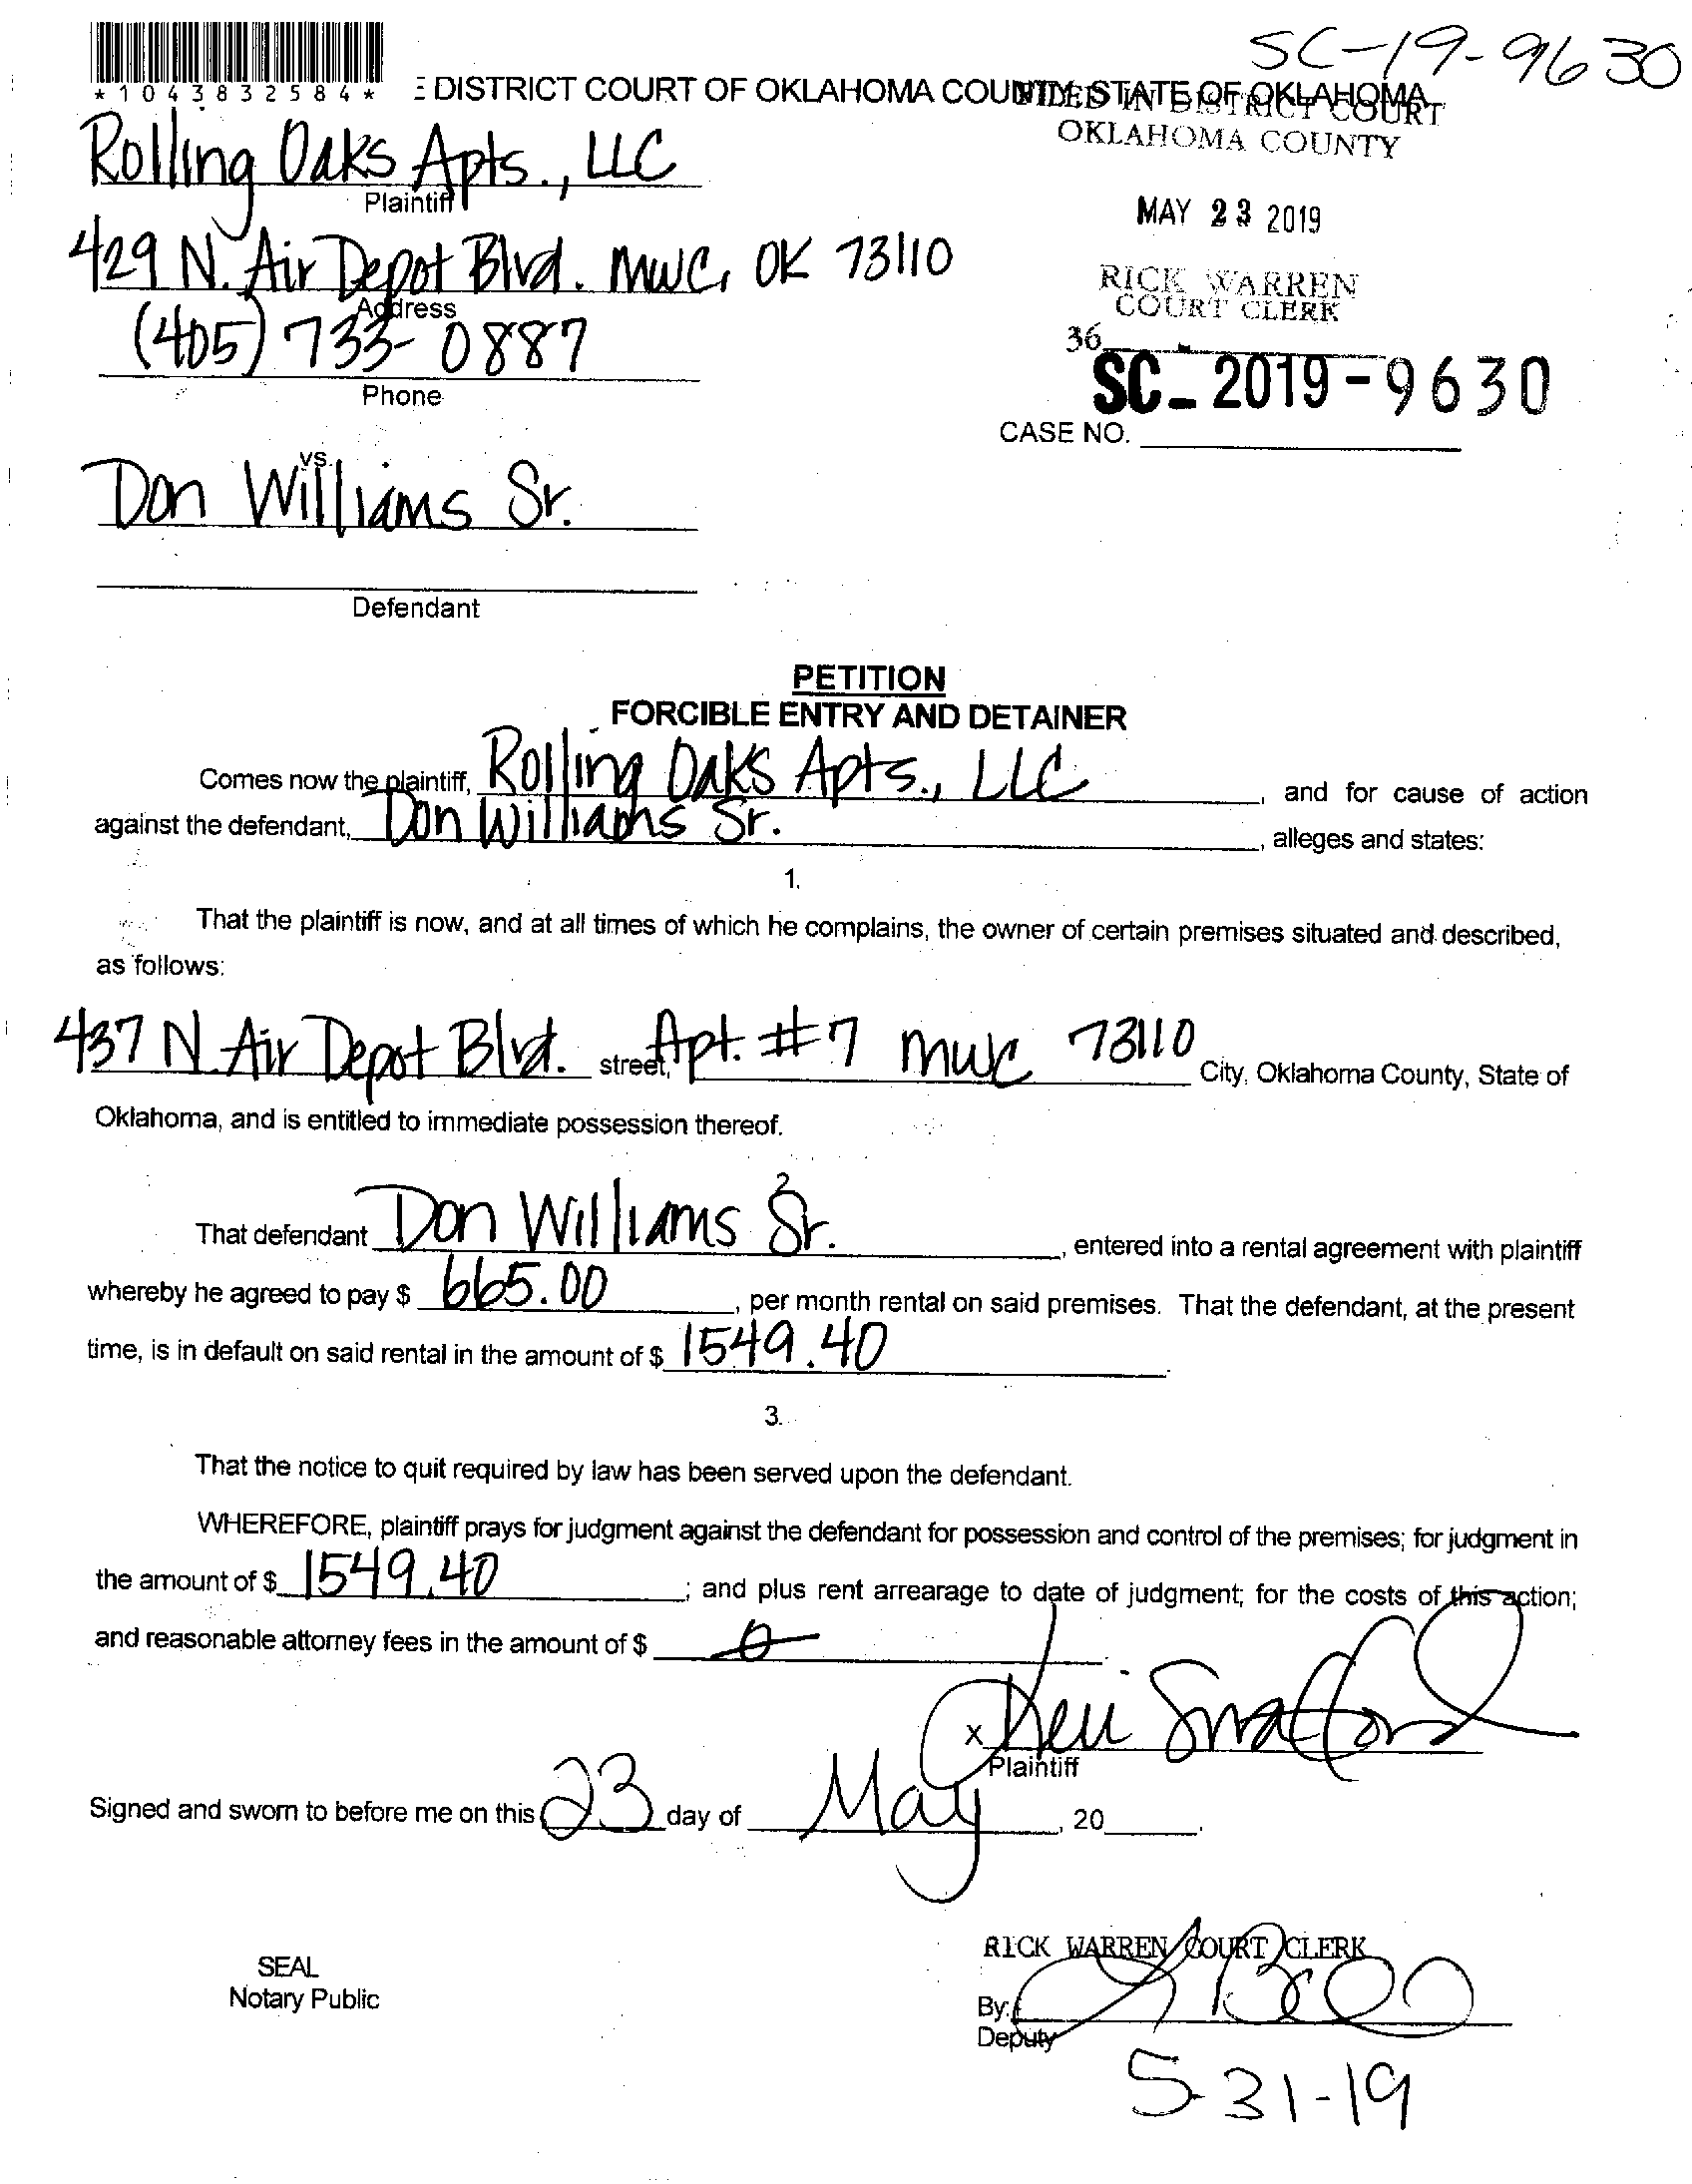 SC-19-9630
*1043832584*
E DISTRICT COURT OF OKLAHOMA COUNTY, STATE OF OKLAHOMA
FILED IN DISTRICT COURT
OKLAHOMA COUNTY
Rolling Oaks Apts., LLC
Plaintiff
MAY 23 2019
429 N. Air Depot Blvd. MWC, OK 73110
Address
RICK WARREN
COURT CLERK
(405) 733-0887
Phone
36
SC-2019-9630
CASE NO.
vs.
Don Williams Sr.
Defendant
PETITION
FORCIBLE ENTRY AND DETAINER
Comes now the plaintiff, Rolling Oaks Apts., LLC, and for cause of action
against the defendant, Don Williams Sr., alleges and states:
1.
That the plaintiff is now, and at all times of which he complains, the owner of certain premises situated and described,
as follows:
437 N. Air Depot Blvd. street, Apt. #7 MWC 73110 City, Oklahoma County, State of
Oklahoma, and is entitled to immediate possession thereof.
2
That defendant Don Williams Sr., entered into a rental agreement with plaintiff
whereby he agreed to pay $ 665.00, per month rental on said premises. That the defendant, at the present
time, is in default on said rental in the amount of $ 1549.40.
3.
That the notice to quit required by law has been served upon the defendant.
WHEREFORE, plaintiff prays for judgment against the defendant for possession and control of the premises; for judgment in
the amount of $ 1549.40; and plus rent arrearage to date of judgment; for the costs of this action;
and reasonable attorney fees in the amount of $ 0
X
Plaintiff
Signed and sworn to before me on this 23 day of May, 20
RICK WARREN COURT CLERK
SEAL
Notary Public
By:
Deputy
5-31-19